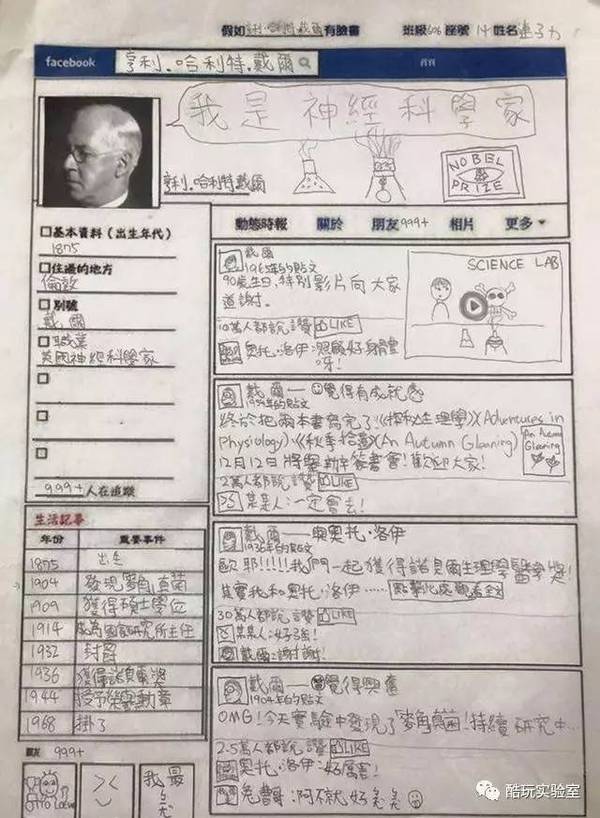 假如亨利.哈利特.戴爾有臉書 班級606 座號14 姓名
facebook 亨利.哈利特.戴爾
我是神經科學家
亨利.哈利特戴爾
NOBEL
PRIZE
動態時報 關於 朋友999+ 相片 更多
□基本資料(出生年代)
1875
□住過的地方
倫敦
□別號
戴爾
□職業
英國神經科學家
□
□
□
999+人在追蹤
生活記事
年份 重要事件
1875 出生
1904 發現麥角真菌
1909 獲得碩士學位
1914 成為國家研究所主任
1932 封爵
1936 獲得諾貝爾獎
1944 授予榮譽勳章
1968 掛了
朋友 999+
OTTO Loewi
我最
戴爾
1965年的貼文
90歲生日,特別影片向大家
道謝。
SCIENCE LAB
10萬人都說讚 LIKE
奧托.洛伊:照顧好身體
呀!
戴爾——覺得有成就感
終於把兩本書寫完了!《探秘生理學》(Adventures in
Physiology)、《秋季拾遺》(An Autumn Gleaning)
12月12日將舉辦簽書會!歡迎大家!
An Autumn
Gleaning
2萬人都說讚 LIKE
某某人:一定會去!
戴爾——與奧托.洛伊
1936年的貼文
歐耶!!!!!我們一起獲得諾貝爾生理學醫學獎!
其實我和奧托.洛伊……點擊此處觀看全文
30萬人都說讚 LIKE
某某人:好強!
戴爾:謝謝!
戴爾——覺得興奮
1904年的貼文
OMG!今天實驗中發現了「麥角真菌」!持續研究中…
2.5萬人都說讚 LIKE
奧托.洛伊:好厲害!
酷玩实验室